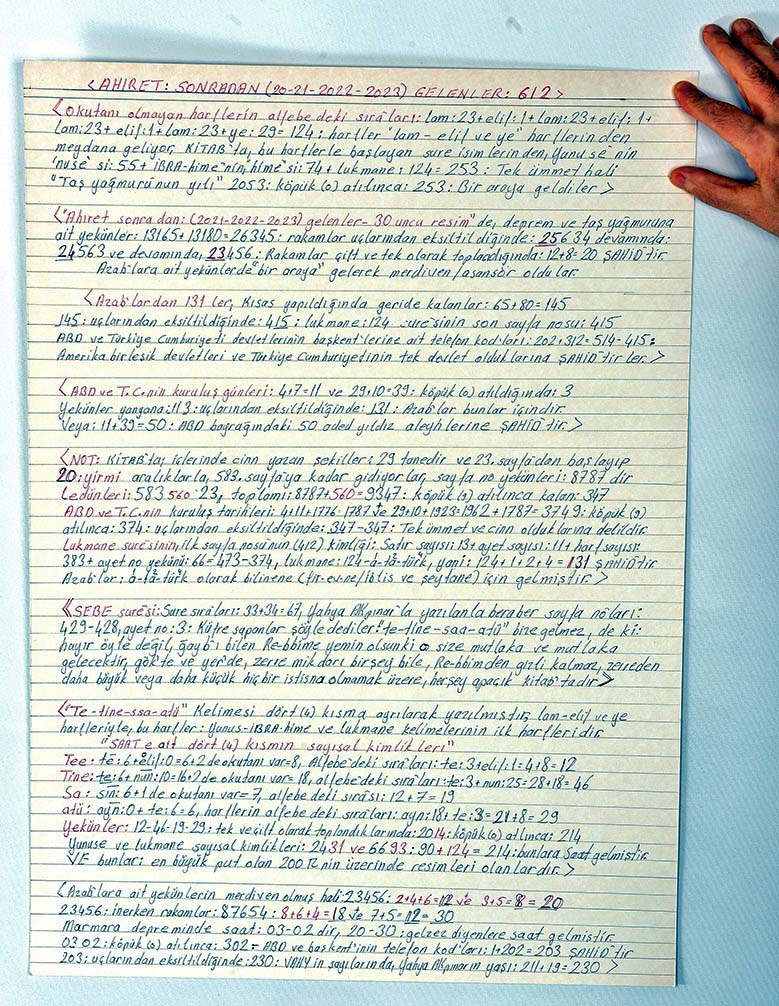 <AHIRET: SONRADAN (20-21-2022-2023) GELENLER: 612>
<Okutanı olmayan harflerin alfebe'deki sıraları: lam:23+elif:1+lam:23+elif:1+
lam:23+elif:1+lam:23+ye:29=124: harfler "lam-elif ve ye" harflerinden
meydana geliyor, KİTAB'ta, bu harflerle başlayan sure isimlerinden, Yunuse'nin
"nuse"si:55+İBRA-hime'nin, hime'si:74+lukmane:124=253: Tek ümmet hali
"Taş yağmuru'nun yılı" 2053: köpük (0) atılınca: 253: Bir araya geldiler>
<"Ahiret sonradan: (2021-2022-2023) gelenler- 30 uncu resim"de, deprem ve taş yağmuruna
ait yekünler: 13165+13180=26345: rakamlar uçlarından eksiltildiğinde: 25634 devamında:
24563 ve devamında, 23456: Rakamlar çift ve tek olarak toplandığında: 12+8=20 ŞAHİD'tir.
Azab'lara ait yekünlerde "bir araya" gelerek merdiven/asansör oldular.
<Azab'lardan 131 ler, Kısas yapıldığında geride kalanlar: 65+80=145
145: uçlarından eksiltildiğinde: 415: lukmane:124 suresinin son sayfa nosu: 415
ABD ve Türkiye Cumhuriyeti devletlerinin başkentlerine ait telefon kod'ları: 202+312=514-415:
Amerika birleşik devletleri ve Türkiye Cumhuriyetinin tek devlet olduklarına ŞAHİD'tirler.>
<ABD ve T.C.nin kuruluş günleri: 4+7=11 ve 29+10=39: köpük (0) atıldığında: 3
Yekünler yanyana: 113: uçlarından eksiltildiğinde: 131: Azab'lar bunlar içindir.
Veya: 11+39=50: ABD bayrağındaki 50 aded yıldız aleyhlerine ŞAHİD'tir.>
<NOT: KİTAB'ta, içlerinde cinn yazan şekiller: 29 tanedir ve 23. sayfa'dan başlayıp
20: yirmi aralıklarla, 583. sayfa'ya kadar gidiyorlar, sayfa no yekünleri: 8787 dir
Ledünleri: 583 560 23, toplamı: 8787+560=9347: köpük (9) atılınca kalan: 347
ABD ve T.C.nin kuruluş tarihleri: 4+11+1776-1787 ve 29+10+1923=1962+1787=3749: köpük (9)
atılınca: 374: uçlarından eksiltildiğinde: 347-347: Tek ümmet ve cinn olduklarına delildir.
Lukmane suresinin, ilk sayfa nosu'nun (412) kimliği: Satır sayısı: 13+ayet sayısı: 11+harf sayısı:
383+ayet no yekünü: 66=473-374, lukmane: 124-a-ta-türk, yani: 124+1+2+4=131 ŞAHİD'tir
Azab'lar: a-ta-türk olarak bilinene (fir-ev-ne/iblis ve şeytane) için gelmiştir.>
<SEBE suresi: Sure sıraları: 33+34=67, Yahya Akpınar'la yazılanla beraber sayfa no'ları:
429-428, ayet no:3: Küfre sapanlar şöyle dediler: "te-tine-saa-atü" bize gelmez, de ki:
hayır öyle değil, ğayb'ı bilen Re-bbime yemin olsunki o size mutlaka ve mutlaka
gelecektir, gök'te ve yer'de, zerre mikdarı birşey bile, Re-bbimden gizli kalmaz, zerreden
daha büyük veya daha küçük hiçbir istisna olmamak üzere, herşey apaçık kitab'tadır>
<"Te-tine-ssa-atü" Kelimesi dört (4) kısma ayrılarak yazılmıştır, lam-elif ve ye
harfleriyle, bu harfler: Yunus-İBRA-hime ve lukmane kelimelerinin ilk harfleri dir.
"SAAT e ait dört (4) kısmın sayısal kimlikleri"
Tee: te: 6+elif:0=6+2 de okutanı var=8, Alfebe'deki sıraları: te:3+elif:1=4+8=12
Tine: te:6+nun:10=16+2 de okutanı var=18, alfebe'deki sıraları: te:3+nun:25=28+18=46
Sa: sin: 6+1 de okutanı var=7, alfebe'deki sırası: 12+7=19
atü: ayn:0+te:6=6, harflerin alfebe'deki sıraları: ayn:18+te:3=21+8=29
Yekünler: 12-46-19-29: tek ve çift olarak toplandıklarında: 2014: köpük (0) atılınca: 214
Yunuse ve lukmane sayısal kimlikleri: 2431 ve 6693: 90+124=214: bunlara Saat gelmiştir.
VE bunlar: en büyük put olan 200 TL nin üzerinde resimleri olanlardır.>
<Azab'lara ait yekünlerin merdiven olmuş hali: 23456: 2+4+6=12 ve 3+5=8=20
23456: inerken rakamlar: 87654: 8+6+4=18 ve 7+5=12=30
Marmara depreminde saat: 03-02 dir, 20-30: gelmez diyenlere saat gelmiştir.
03 02: köpük (0) atılınca: 302=ABD ve başkent'inin telefon kod'ları: 1+202=203 ŞAHİD'tir
203: uçlarından eksiltildiğinde: 230: VAHY'in sayılarında, Yahya Akpınarın yaşı: 211+19=230>